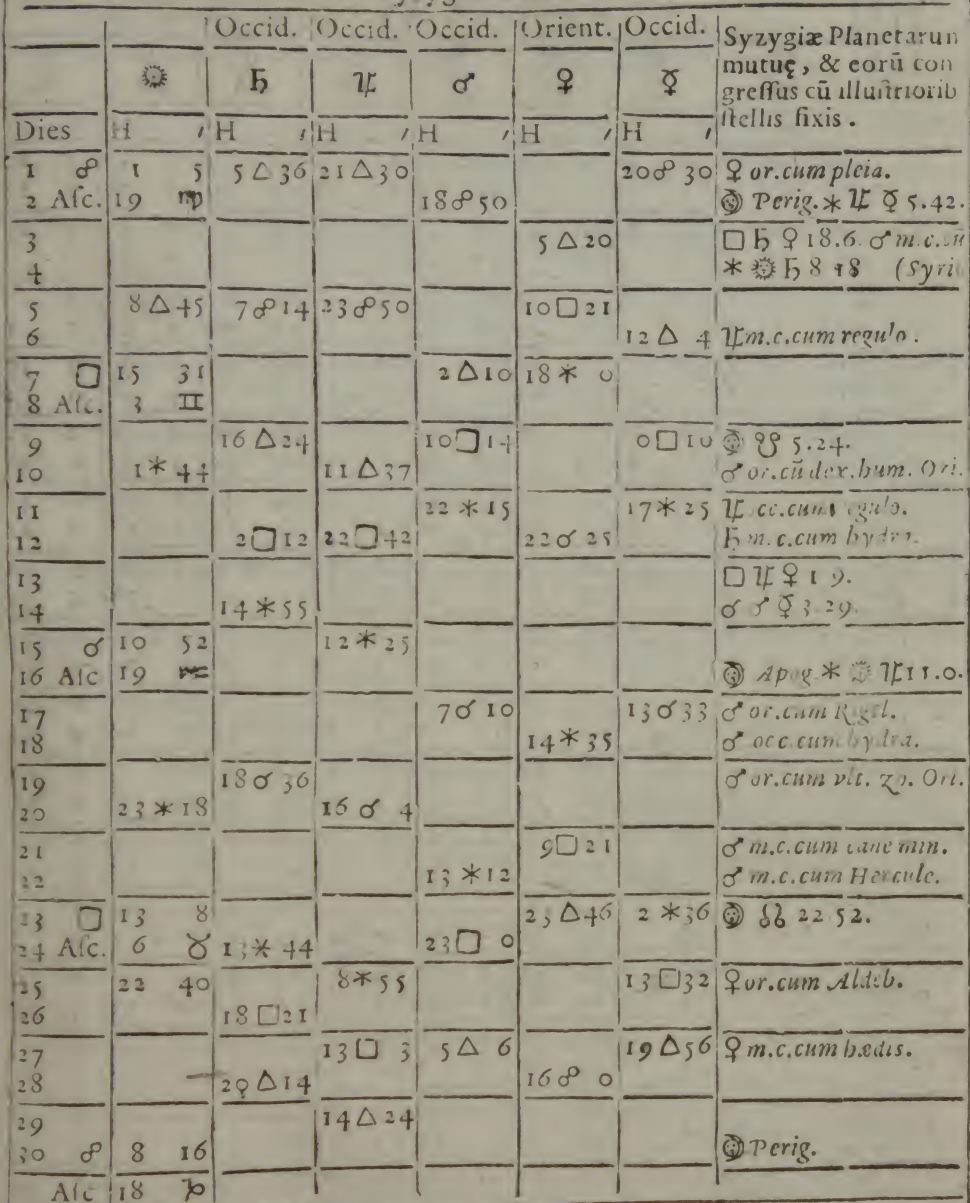 Occid. Occid. Occid. Orient. Occid. Syzygiæ Planetarum
☉ ♄ ♃ ♂ ♀ ☿ mutuę, & eorū con
greſſus cū illuſtriorib
Dies H ′ H ′ H ′ H ′ H ′ H ′ ſtellis fixis.
1 ☍ 1 5 5 △ 36 21 △ 30 20 ☍ 30 ♀ or.cum pleia.
2 Aſc. 19 ♍ 18 ☍ 50 ☽ Perig. ⚹ ♃ ☿ 5.42.
3 5 △ 20 □ ♄ ♀ 18.6. ♂ m.c.
4 ⚹ ☉ ♄ 8 18 (Syri
5 8 △ 45 7 ☍ 14 23 ☍ 50 10 □ 21
6 12 △ 4 ♃ m.c.cum regulo.
7 □ 15 31 2 △ 10 18 ⚹ 0
8 Aſc. 3 ♊
9 16 △ 24 10 □ 14 0 □ 10 ☽ ☋ 5.24.
10 1 ⚹ 44 11 △ 37 ♂ or.cū dex.hum. Ori.
11 22 ⚹ 15 17 ⚹ 25 ♃ cum regulo.
12 2 □ 12 22 □ 42 22 ☌ 25 ♄ m.c.cum hydra.
13 □ ♃ ♀ 1 9.
14 14 ⚹ 55 ☌ ♂ ☿ 3.29.
15 ☌ 10 52 12 ⚹ 25
16 Aſc 19 ♒ ☽ Apog. ⚹ ☉ ♃ 11.0.
17 7 ☌ 10 13 ☌ 33 ♂ or.cum Rigel.
18 14 ⚹ 35 ♂ occ.cum hydra.
19 18 ☌ 36 ♂ or.cum vlt. zo. Ori.
20 23 ⚹ 18 16 ☌ 4
21 9 □ 21 ♂ m.c.cum cane min.
22 13 ⚹ 12 ♂ m.c.cum Hercule.
23 □ 13 8 23 △ 46 2 ⚹ 36 ☽ ☊ 22 52.
24 Aſc. 6 ♉ 13 ⚹ 44 23 □ 0
25 22 40 8 ⚹ 55 13 □ 32 ♀ or.cum Aldeb.
26 18 □ 21
27 13 □ 3 5 △ 6 19 △ 56 ♀ m.c.cum hædis.
28 20 △ 14 16 ☍ 0
29 14 △ 24
30 ☍ 8 16 ☽ Perig.
Aſc 18 ♑